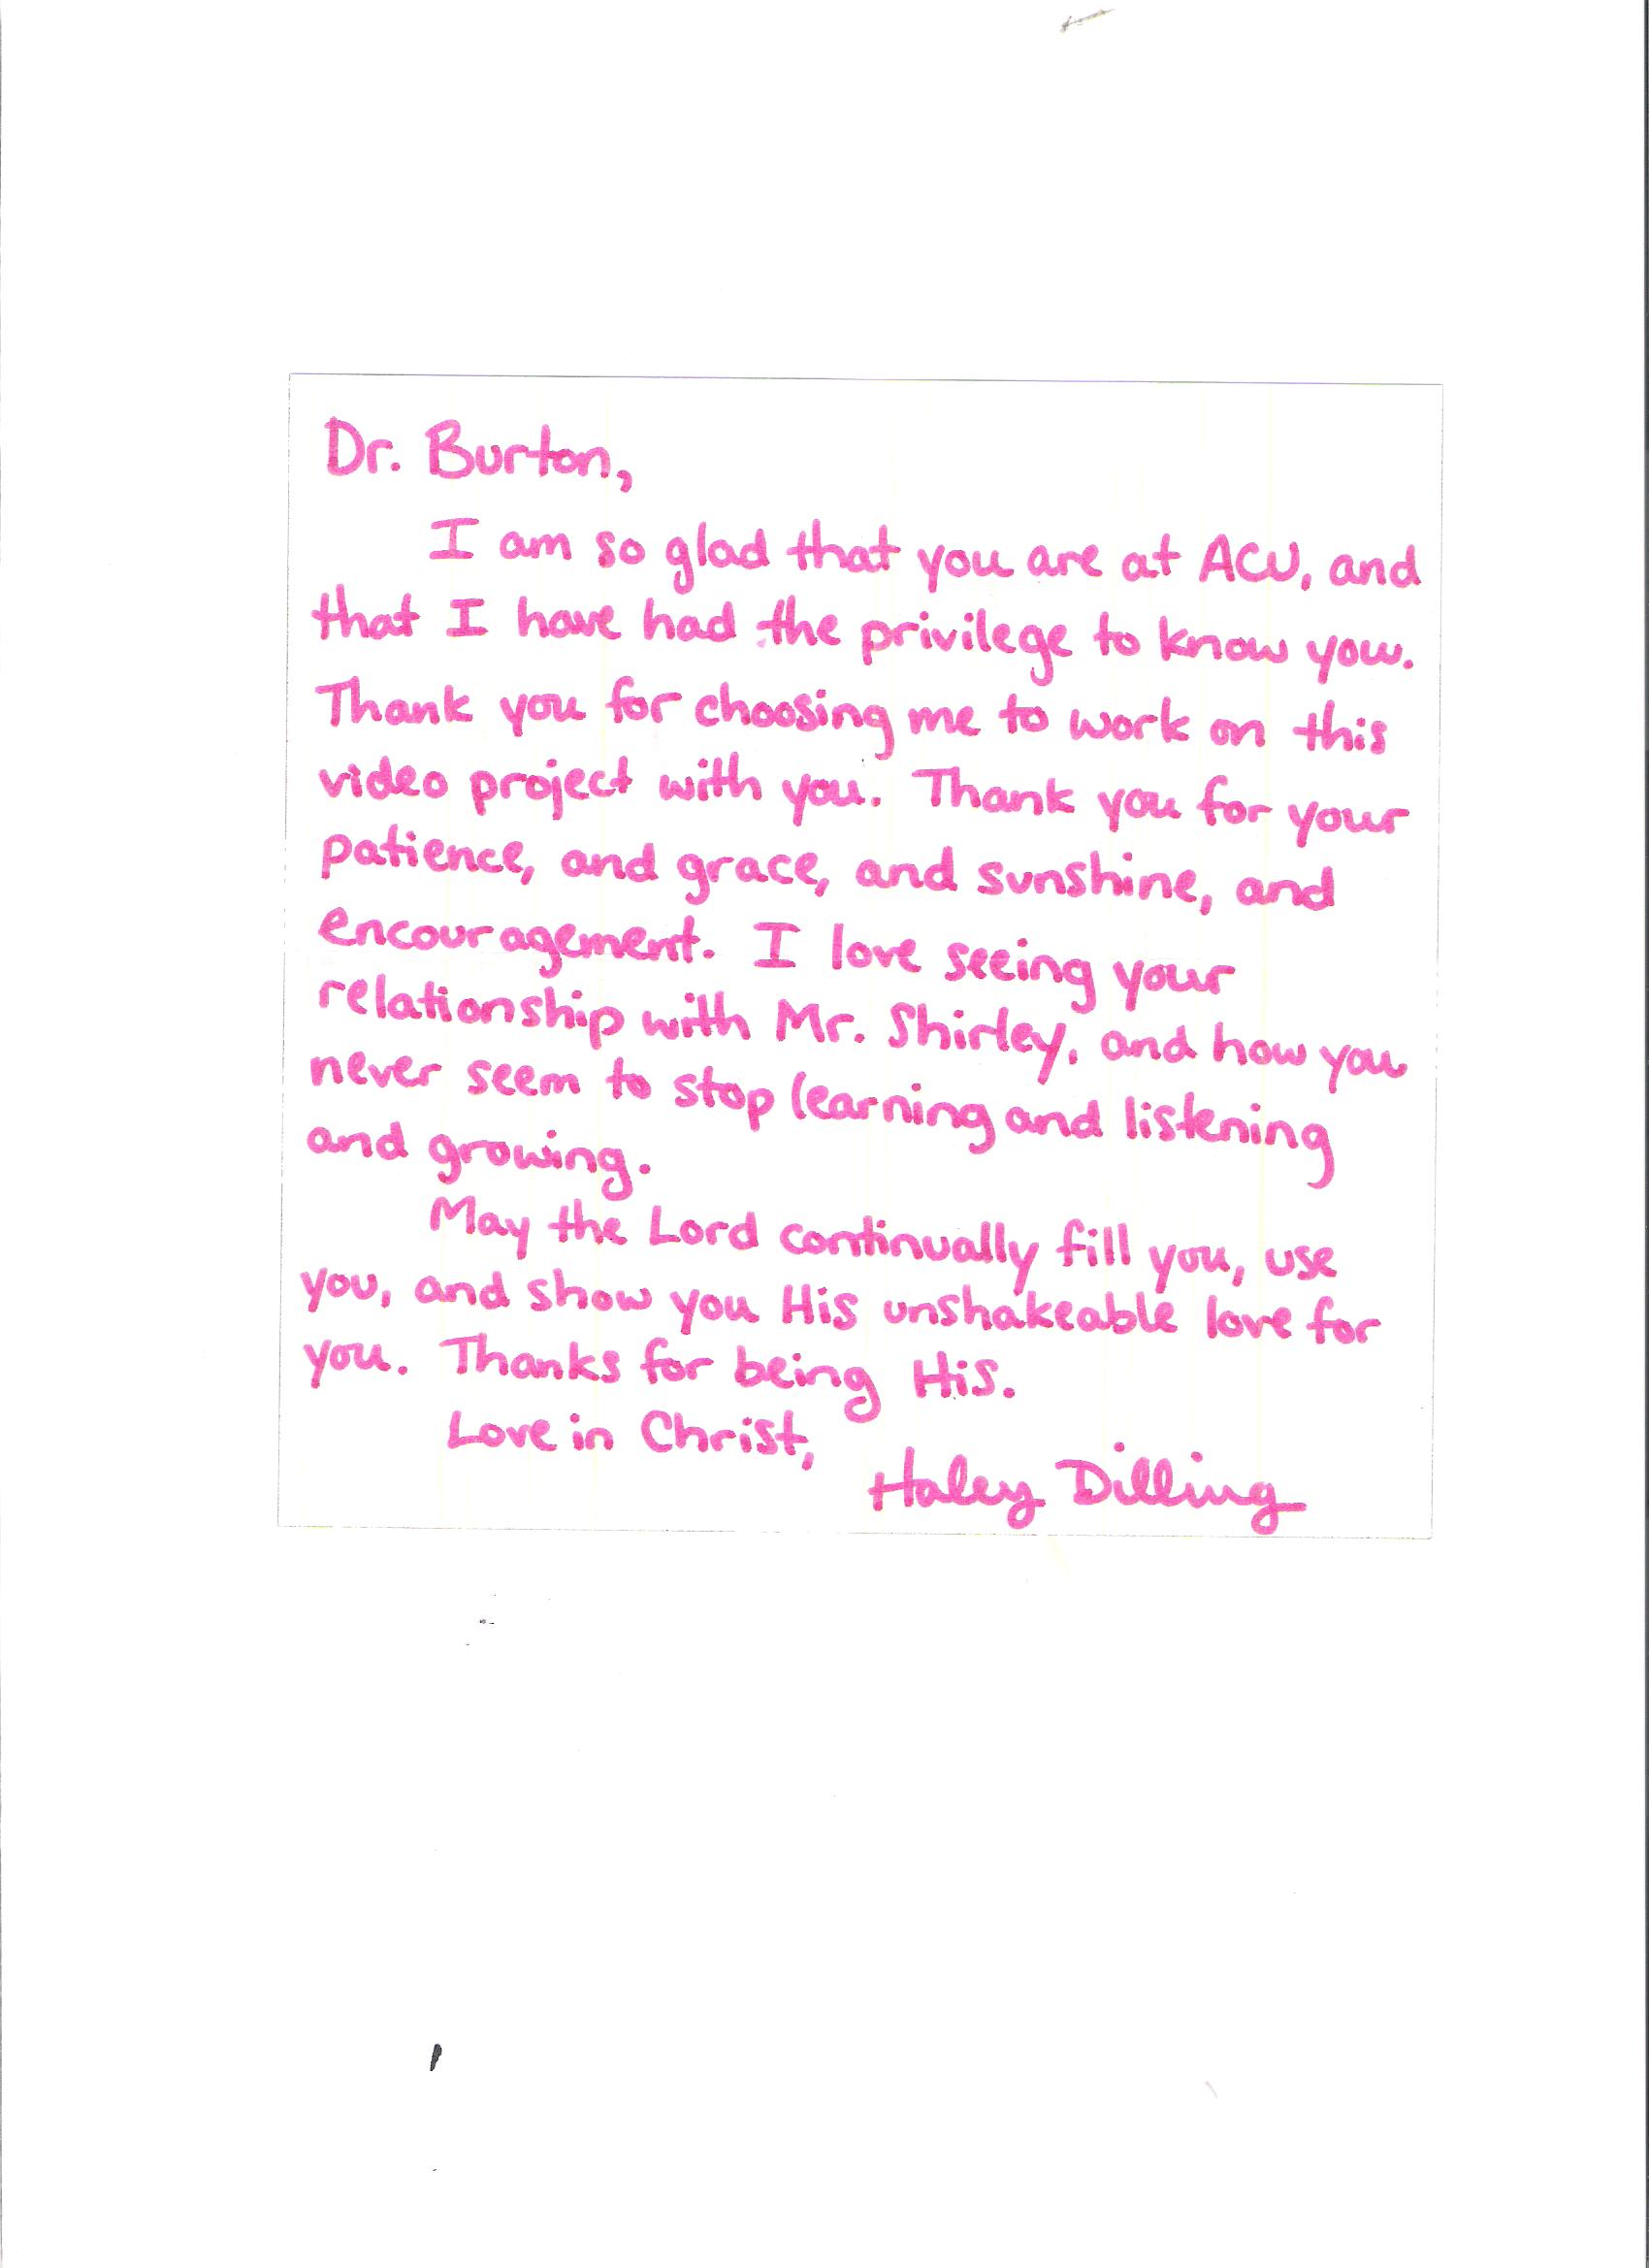 Dr. Burton,
I am so glad that you are at ACU, and
that I have had the privilege to know you.
Thank you for choosing me to work on this
video project with you. Thank you for your
patience, and grace, and sunshine, and
encouragement. I love seeing your
relationship with Mr. Shirley, and how you
never seem to stop learning and listening
and growing.
May the Lord continually fill you, use
you, and show you His unshakeable love for
you. Thanks for being His.
Love in Christ,
Haley Dilling